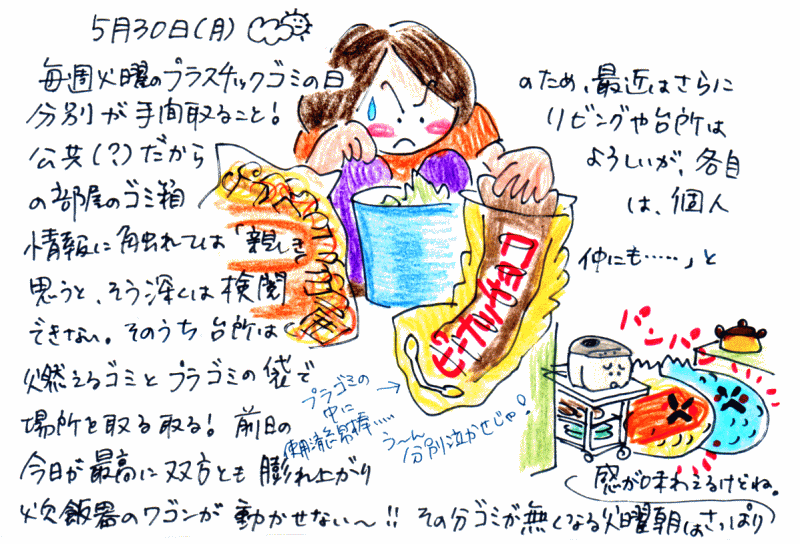 5月30日(月)
毎週火曜のプラスチックゴミの日のため、最近はさらに
分別が手間取ること!リビングや台所は
公共(?)だからよろしいが、各自
の部屋のゴミ箱は、個人
情報に触れては「親しき仲にも……」と
思うと、そう深くは検閲
できない。そのうち台所は
燃えるゴミとプラゴミの袋で
場所を取る取る!前日の
今日が最高に双方とも膨れ上がり
炊飯器のワゴンが動かせない〜!!その分ゴミが無くなる火曜朝はさっぱり
感が味わえるけどね。
ピーナッツチョコ
プラゴミの
中に
使用済綿棒……
う〜ん
分別泣かせじゃ!
パンパン